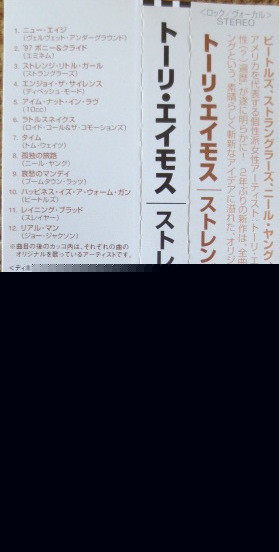 1. ニュー・エイジ
(ヴェルヴェット・アンダーグラウンド)
2. '97 ボニー&クライド
(エミネム)
3. ストレンジ・リトル・ガール
(ストラングラーズ)
4. エンジョイ・ザ・サイレンス
(ディペッシュ・モード)
5. アイム・ナット・イン・ラヴ
(10cc)
6. ラトルスネイクス
(ロイド・コール&ザ・コモーションズ)
7. タイム
(トム・ウェイツ)
8. 孤独の旅路
(ニール・ヤング)
9. 哀愁のマンディ
(ブームタウン・ラッツ)
10. ハッピネス・イズ・ア・ウォーム・ガン
(ビートルズ)
11. レイニング・ブラッド
(スレイヤー)
12. リアル・マン
(ジョー・ジャクソン)
※曲目の後のカッコ内は、それぞれの曲の
オリジナルを歌っているアーティストです。
トーリ・エイモス
ストレン
<ロック/ヴォーカル>
STEREO
トーリ・エイモス
ストレン
ビートルズ、ストラングラーズ、ニール・ヤング
アメリカを代表する個性派女性アーティスト・トーリ・エ
が遂に明らかに! 2年ぶりの新作は、全曲
ングという、素晴らしく斬新なアイデアに溢れた、オリジ